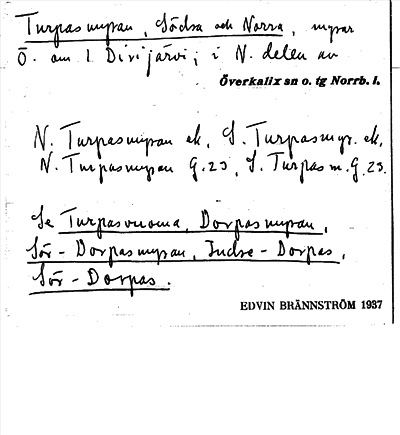 Turpasmyran, Södra och Norra, myrar
Ö. om l Divijärvi; i N. delen av
Överkalix sn o. tg Norrb. l.
N. Turpasmyran ek, S. Turpasmyr. ek,
N. Turpasmyran G.23, S. Turpas m. G. 23.
Se Turpasvuoma, Dorpasmyran,
Sör-Dorpasmyran, Indre-Dorpas,
Sör-Dorpas.
EDVIN BRÄNNSTRÖM 1937